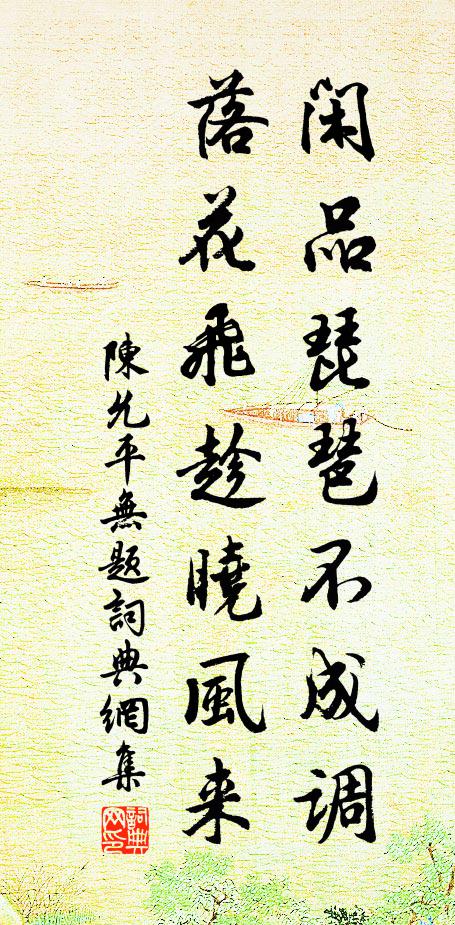 閑品琵琶不成调
落花飛趁曉風来
陳允平無题詞典網集
詞典網印